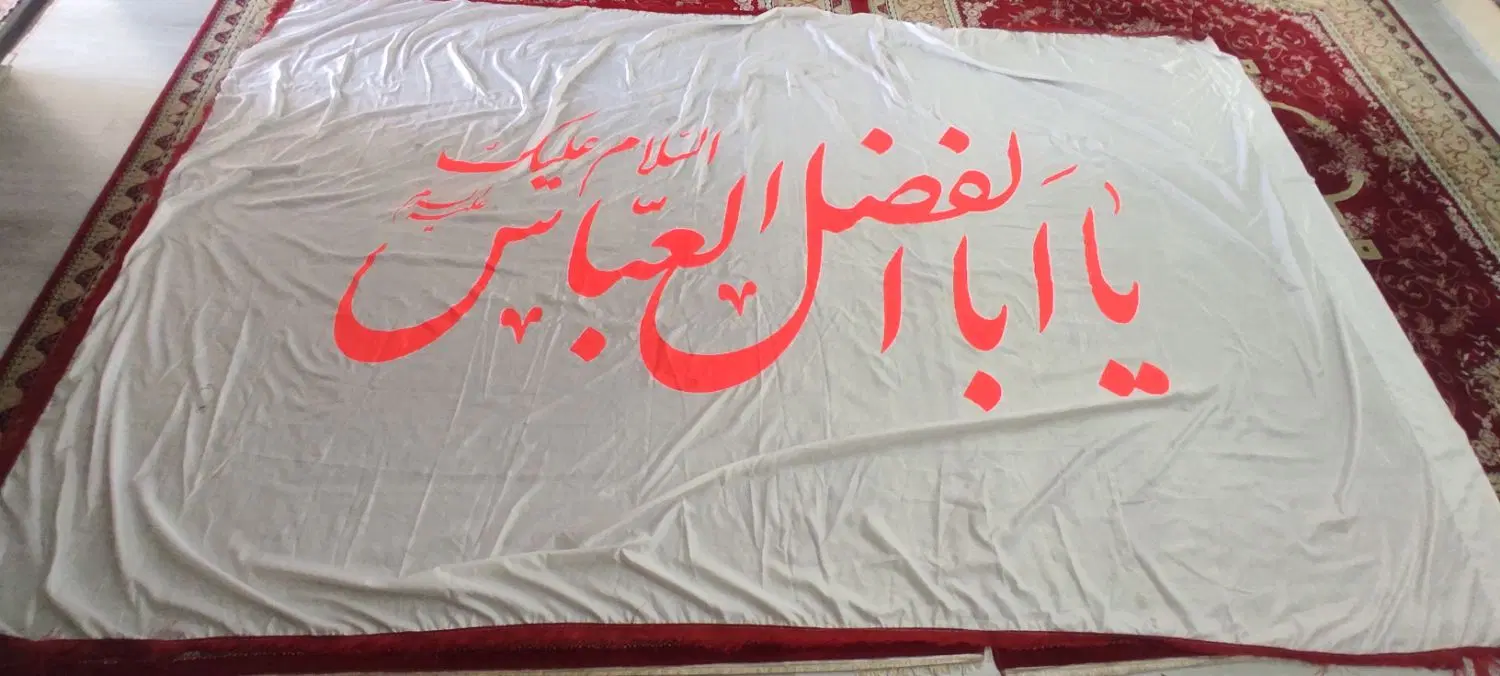 السلام علیک
یا اباالفضل العبّاس
علیه السلام